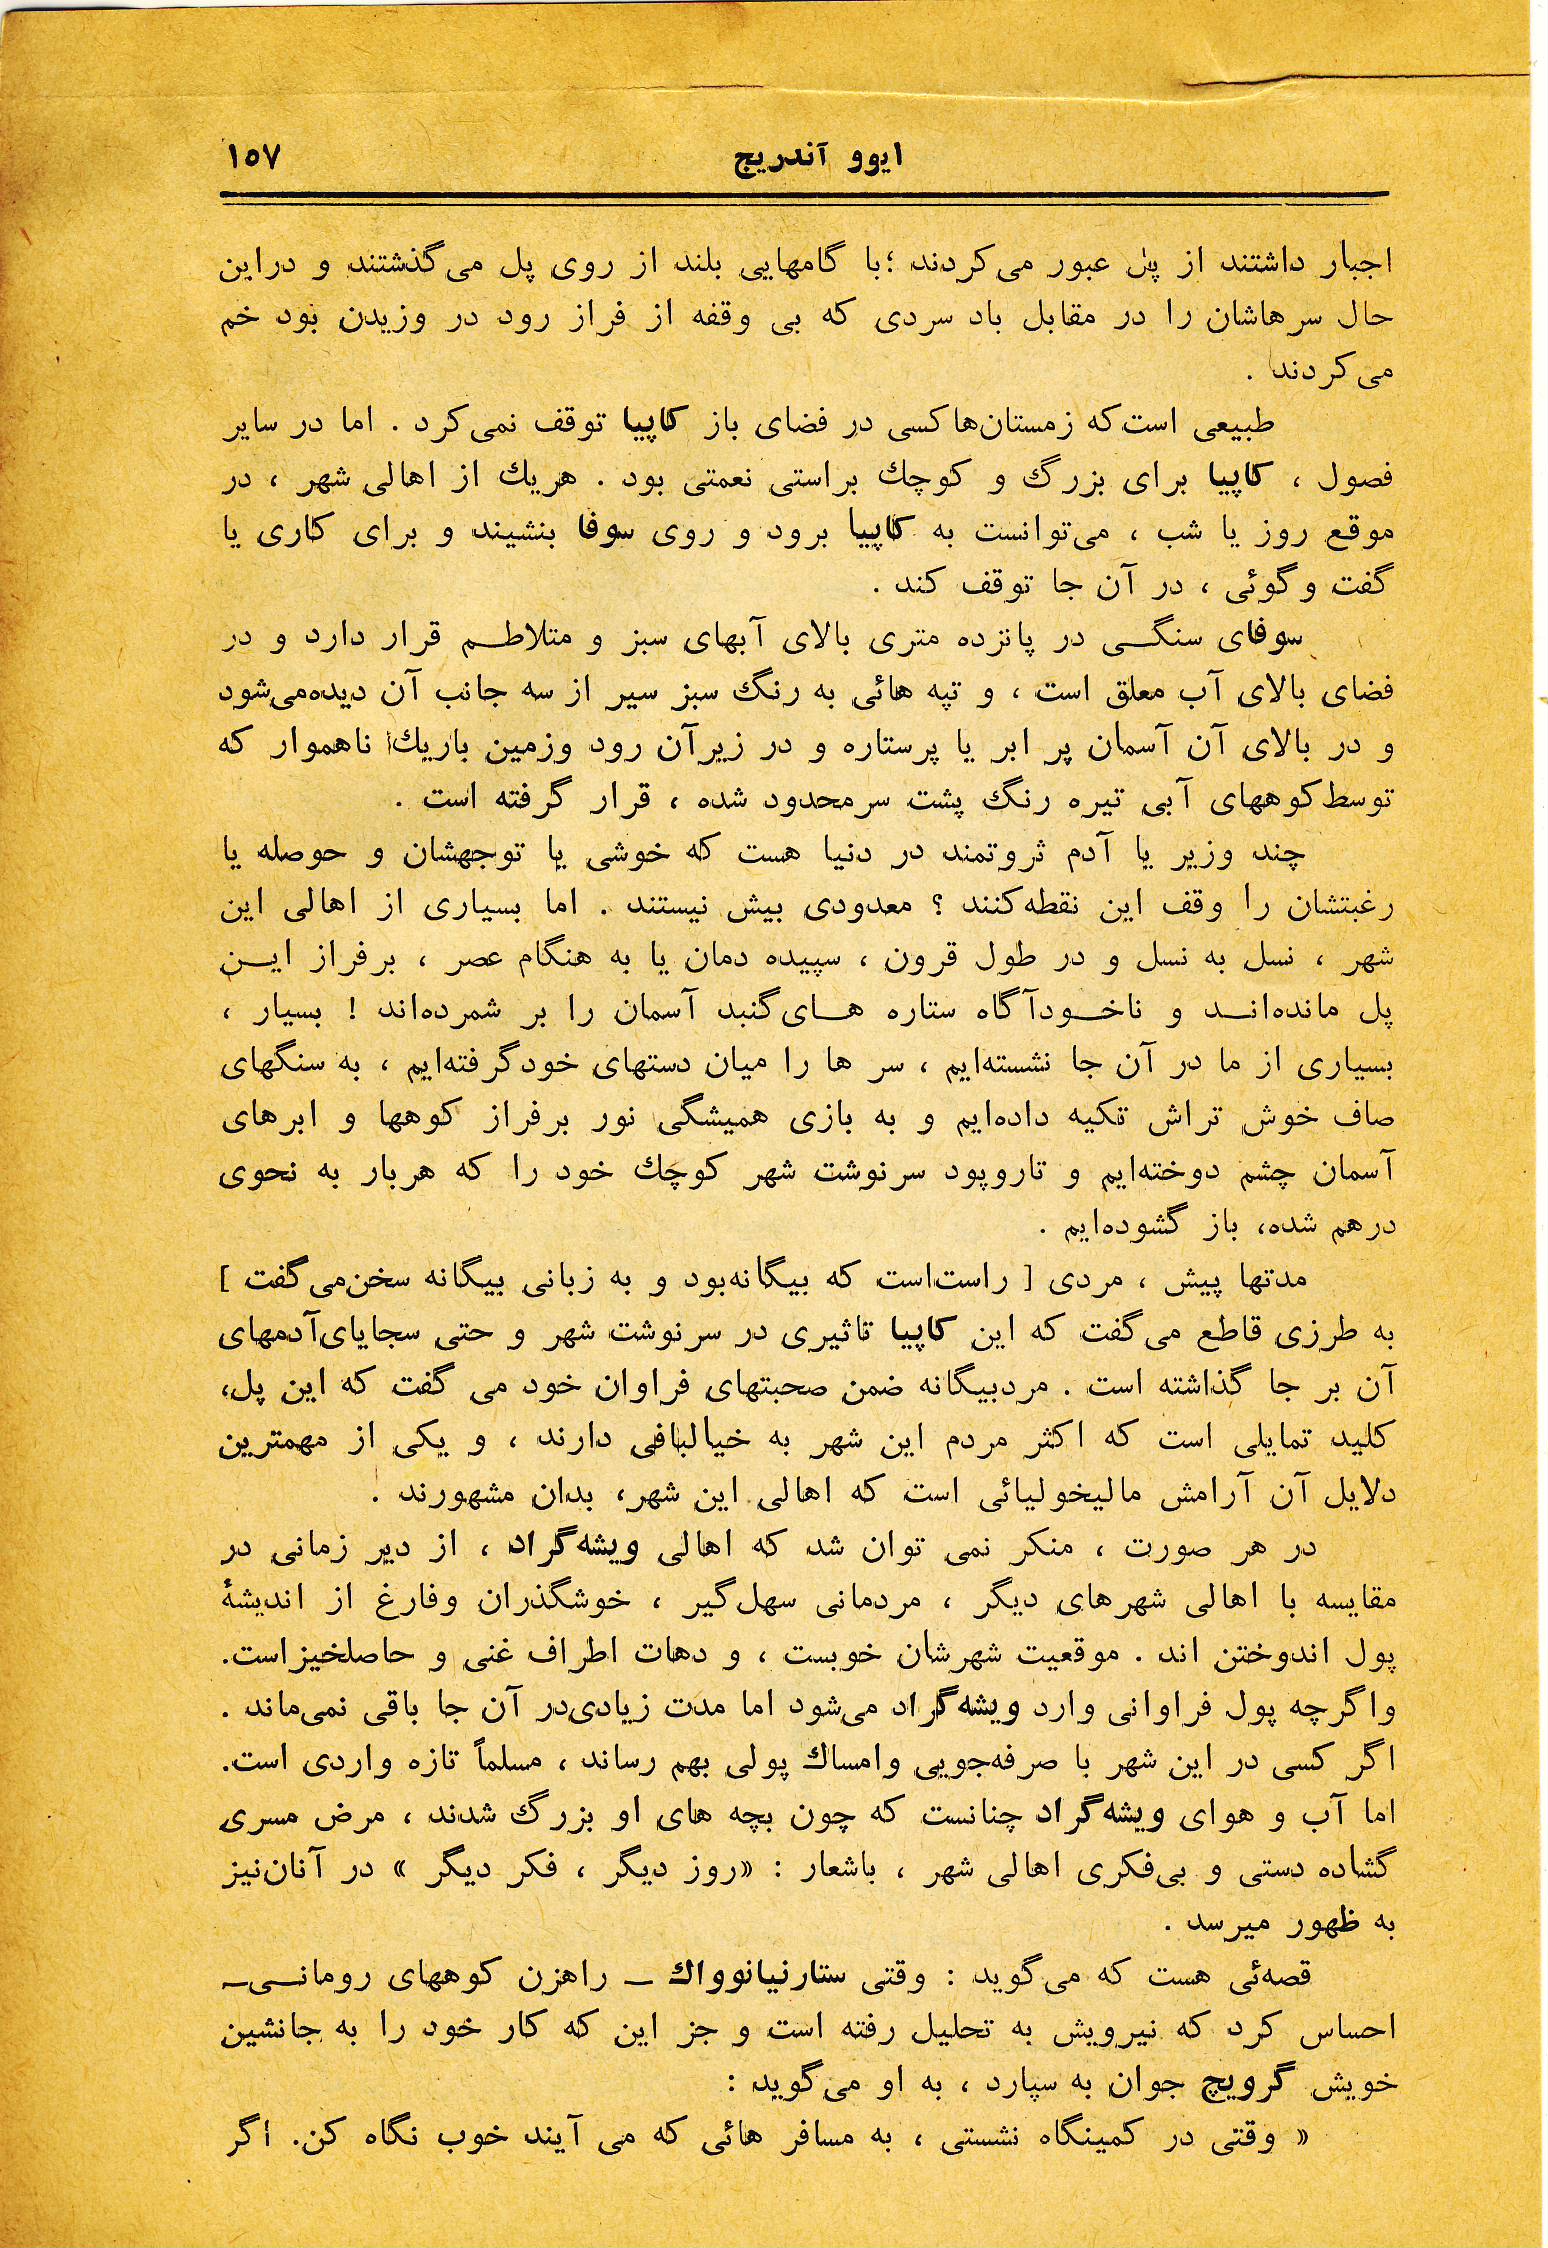 ایوو آندریج
۱۵۷
اجبار داشتند از پل عبور می‌کردند ؛با گامهایی بلند از روی پل می‌گذشتند و دراین
حال سرهاشان را در مقابل باد سردی که بی وقفه از فراز رود در وزیدن بود خم
می‌کردند .
طبیعی است‌که زمستان‌ها‌کسی در فضای باز کاپیا توقف نمی‌کرد . اما در سایر
فصول ، کاپیا برای بزرگ و کوچك براستی نعمتی بود . هریك از اهالی شهر ، در
موقع روز یا شب ، می‌توانست به کاپیا برود و روی سوفا بنشیند و برای کاری یا
گفت وگوئی ، در آن جا توقف کند .
سوفای سنگــی در پانزده متری بالای آبهای سبز و متلاطــم قرار دارد و در
فضای بالای آب معلق است ، و تپه هائی به رنگ سبز سیر از سه جانب آن دیده‌می‌شود
و در بالای آن آسمان پر ابر یا پرستاره و در زیرآن رود وزمین باریك ناهموار که
توسط‌کوههای آبی تیره رنگ پشت سرمحدود شده ، قرار گرفته است .
چند وزیر یا آدم ثروتمند در دنیا هست که خوشی یا توجهشان و حوصله یا
رغبتشان را وقف این نقطه‌کنند ؟ معدودی بیش نیستند . اما بسیاری از اهالی این
شهر ، نسل به نسل و در طول قرون ، سپیده دمان یا به هنگام عصر ، برفراز ایــن
پل مانده‌انــد و ناخــودآگاه ستاره هــای‌گنبد آسمان را بر شمرده‌اند ! بسیار ،
بسیاری از ما در آن جا نشسته‌ایم ، سر ها را میان دستهای خودگرفته‌ایم ، به سنگهای
صاف خوش تراش تکیه داده‌ایم و به بازی همیشگی نور برفراز کوهها و ابرهای
آسمان چشم دوخته‌ایم و تاروپود سرنوشت شهر کوچك خود را که هربار به نحوی
درهم شده، باز گشوده‌ایم .
مدتها پیش ، مردی [ راست‌است که بیگانه‌بود و به زبانی بیگانه سخن‌می‌گفت ]
به طرزی قاطع می‌گفت که این کاپیا تاثیری در سرنوشت شهر و حتی سجایای‌آدمهای
آن بر جا گذاشته است . مردبیگانه ضمن صحبتهای فراوان خود می گفت که این پل،
کلید تمایلی است که اکثر مردم این شهر به خیالبافی دارند ، و یکی از مهمترین
دلایل آن آرامش مالیخولیائی است که اهالی این شهر، بدان مشهورند .
در هر صورت ، منکر نمی توان شد که اهالی ویشه‌گراد ، از دیر زمانی در
مقایسه با اهالی شهرهای دیگر ، مردمانی سهل‌گیر ، خوشگذران وفارغ از اندیشهٔ
پول اندوختن اند . موقعیت شهرشان خوبست ، و دهات اطراف غنی و حاصلخیزاست.
واگرچه پول فراوانی وارد ویشه‌گراد می‌شود اما مدت زیادی‌در آن جا باقی نمی‌ماند .
اگر کسی در این شهر با صرفه‌جویی وامساك پولی بهم رساند ، مسلماً تازه واردی است.
اما آب و هوای ویشه‌گراد چنانست که چون بچه های او بزرگ شدند ، مرض مسری
گشاده دستی و بی‌فکری اهالی شهر ، باشعار : «روز دیگر ، فکر دیگر » در آنان‌نیز
به ظهور میرسد .
قصه‌ئی هست که می‌گوید : وقتی ستارنیانوواك ــ راهزن کوههای رومانــی‌ــ
احساس کرد که نیرویش به تحلیل رفته است و جز این که کار خود را به جانشین
خویش گرویچ جوان به سپارد ، به او می‌گوید :
« وقتی در کمینگاه نشستی ، به مسافر هائی که می آیند خوب نگاه کن. اگر